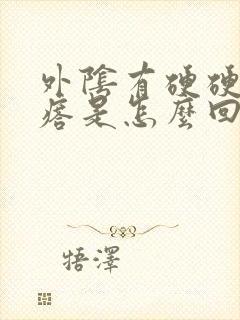 外陰有硬硬
瘩是怎麼回
牾澤